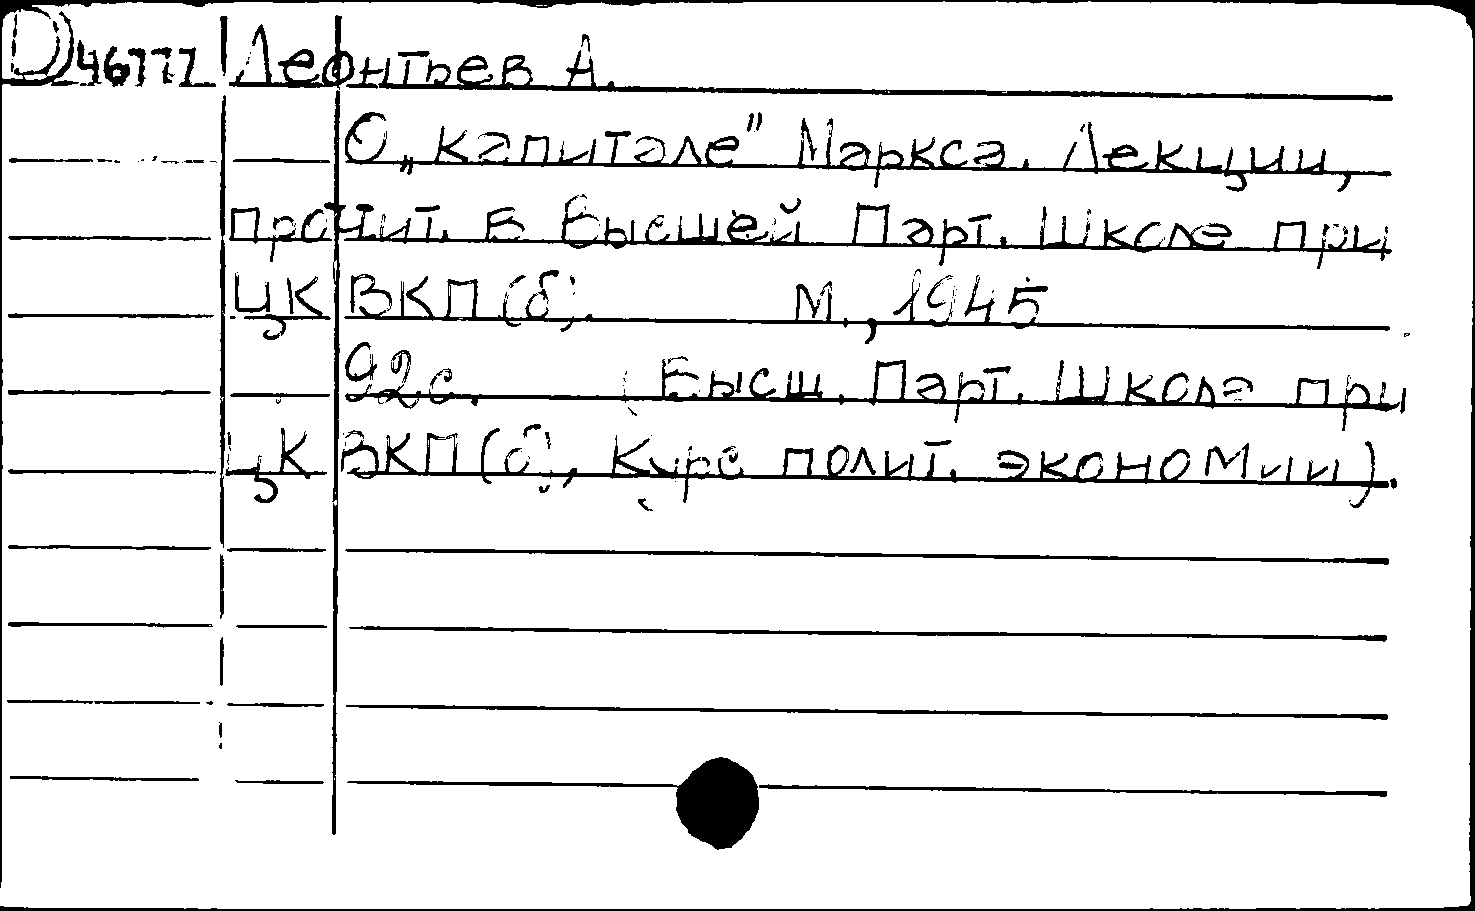 D46777 Леонтьев А.
О „Капитале” Маркса. Лекции,
прочит. в Высшей Парт. Школе при
ЦК ВКП(б). М., 1945
92с. (Высш. Парт. Школа при
ЦК ВКП(б), Курс полит. экономии).